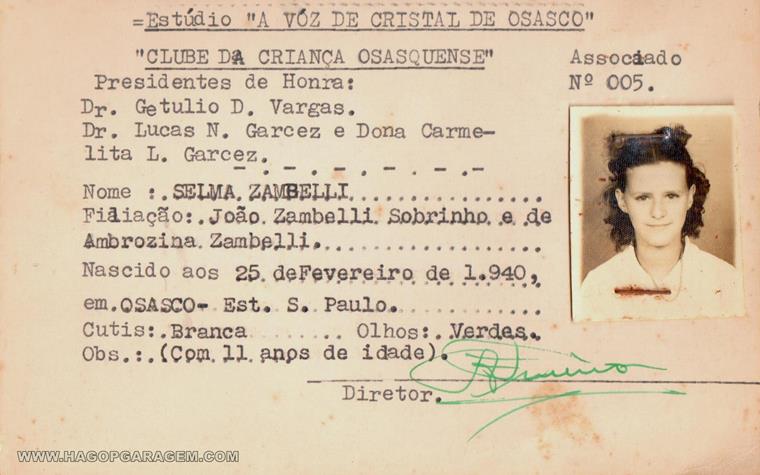 =Estúdio "A VÓZ DE CRISTAL DE OSASCO"
"CLUBE DA CRIANÇA OSASQUENSE"
Associado
Nº 005.
Presidentes de Honra:
Dr. Getulio D. Vargas.
Dr. Lucas N. Garcez e Dona Carme-
lita L. Garcez.
Nome :. SELMA ZAMBELLI
Filiação:. João Zambelli Sobrinho e de
Ambrozina Zambelli.
Nascido aos 25 deFevereiro de 1.940,
em.OSASCO- Est. S. Paulo.
Cutis:.Branca Olhos:.Verdes.
Obs.:.(Com 11 anos de idade).
Diretor.
WWW.HAGOPGARAGEM.COM